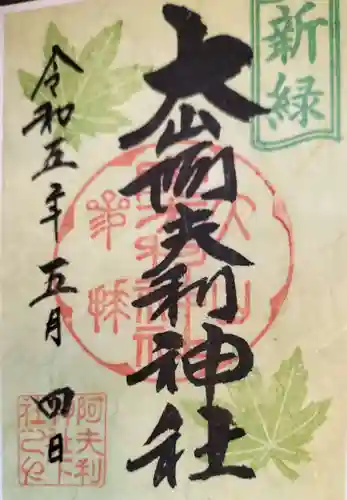 新緑
大山阿夫利神社
令和五年五月四日
阿夫利
神社下
社之印